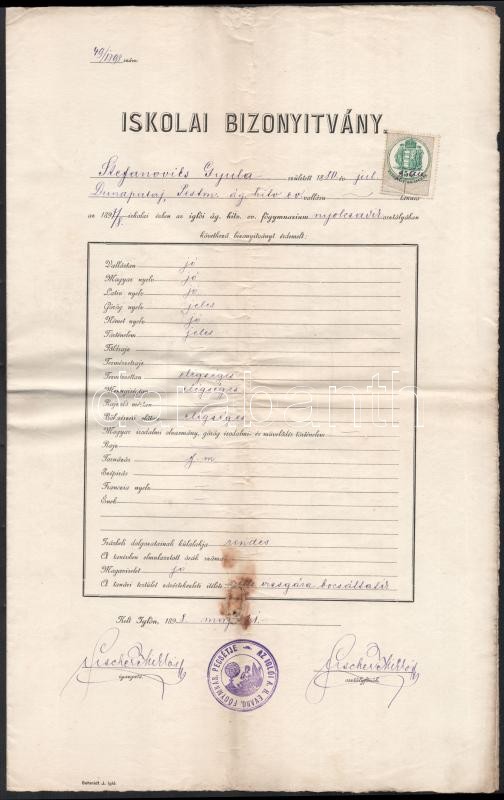 49/1898 szám.
ISKOLAI BIZONYITVÁNY.
Stefanovits Gyula született 1880 év júl.
Dunapataj, Pestm. ág. hitv. ev. vallású
az 1897/8 iskolai évben az iglói ág. hitv. ev. főgymnasium nyolcadik osztályában
következő bizonyitványt érdemelt:
Vallástan jó
Magyar nyelv jó
Latin nyelv jó
Görög nyelv jeles
Német nyelv jó
Történelem jeles
Földrajz
Természetrajz
Természettan elégséges
Mennyiségtan elégséges
Rajzoló mértan
Bölcsészeti előt. elégséges
Magyar irodalmi olvasmány, görög irodalmi és művelődés történelem
Rajz
Tornázás f. m.
Szépirás
Franczia nyelv —
Ének —
Irásbeli dolgozatainak külalakja rendes
A tanévben elmulasztott órák száma
Magaviselet jó
A tanári testület érdemleges itélete vizsgára bocsáttatik
Kelt Iglón, 1898. máj.
Fischer Miklós Fischer Miklós
igazgató. osztályfőnök.
AZ IGLÓI Á. H. EVANG. FŐGYMNÁS. PECSÉTJE
Schmidt J. Igló.
darabanth